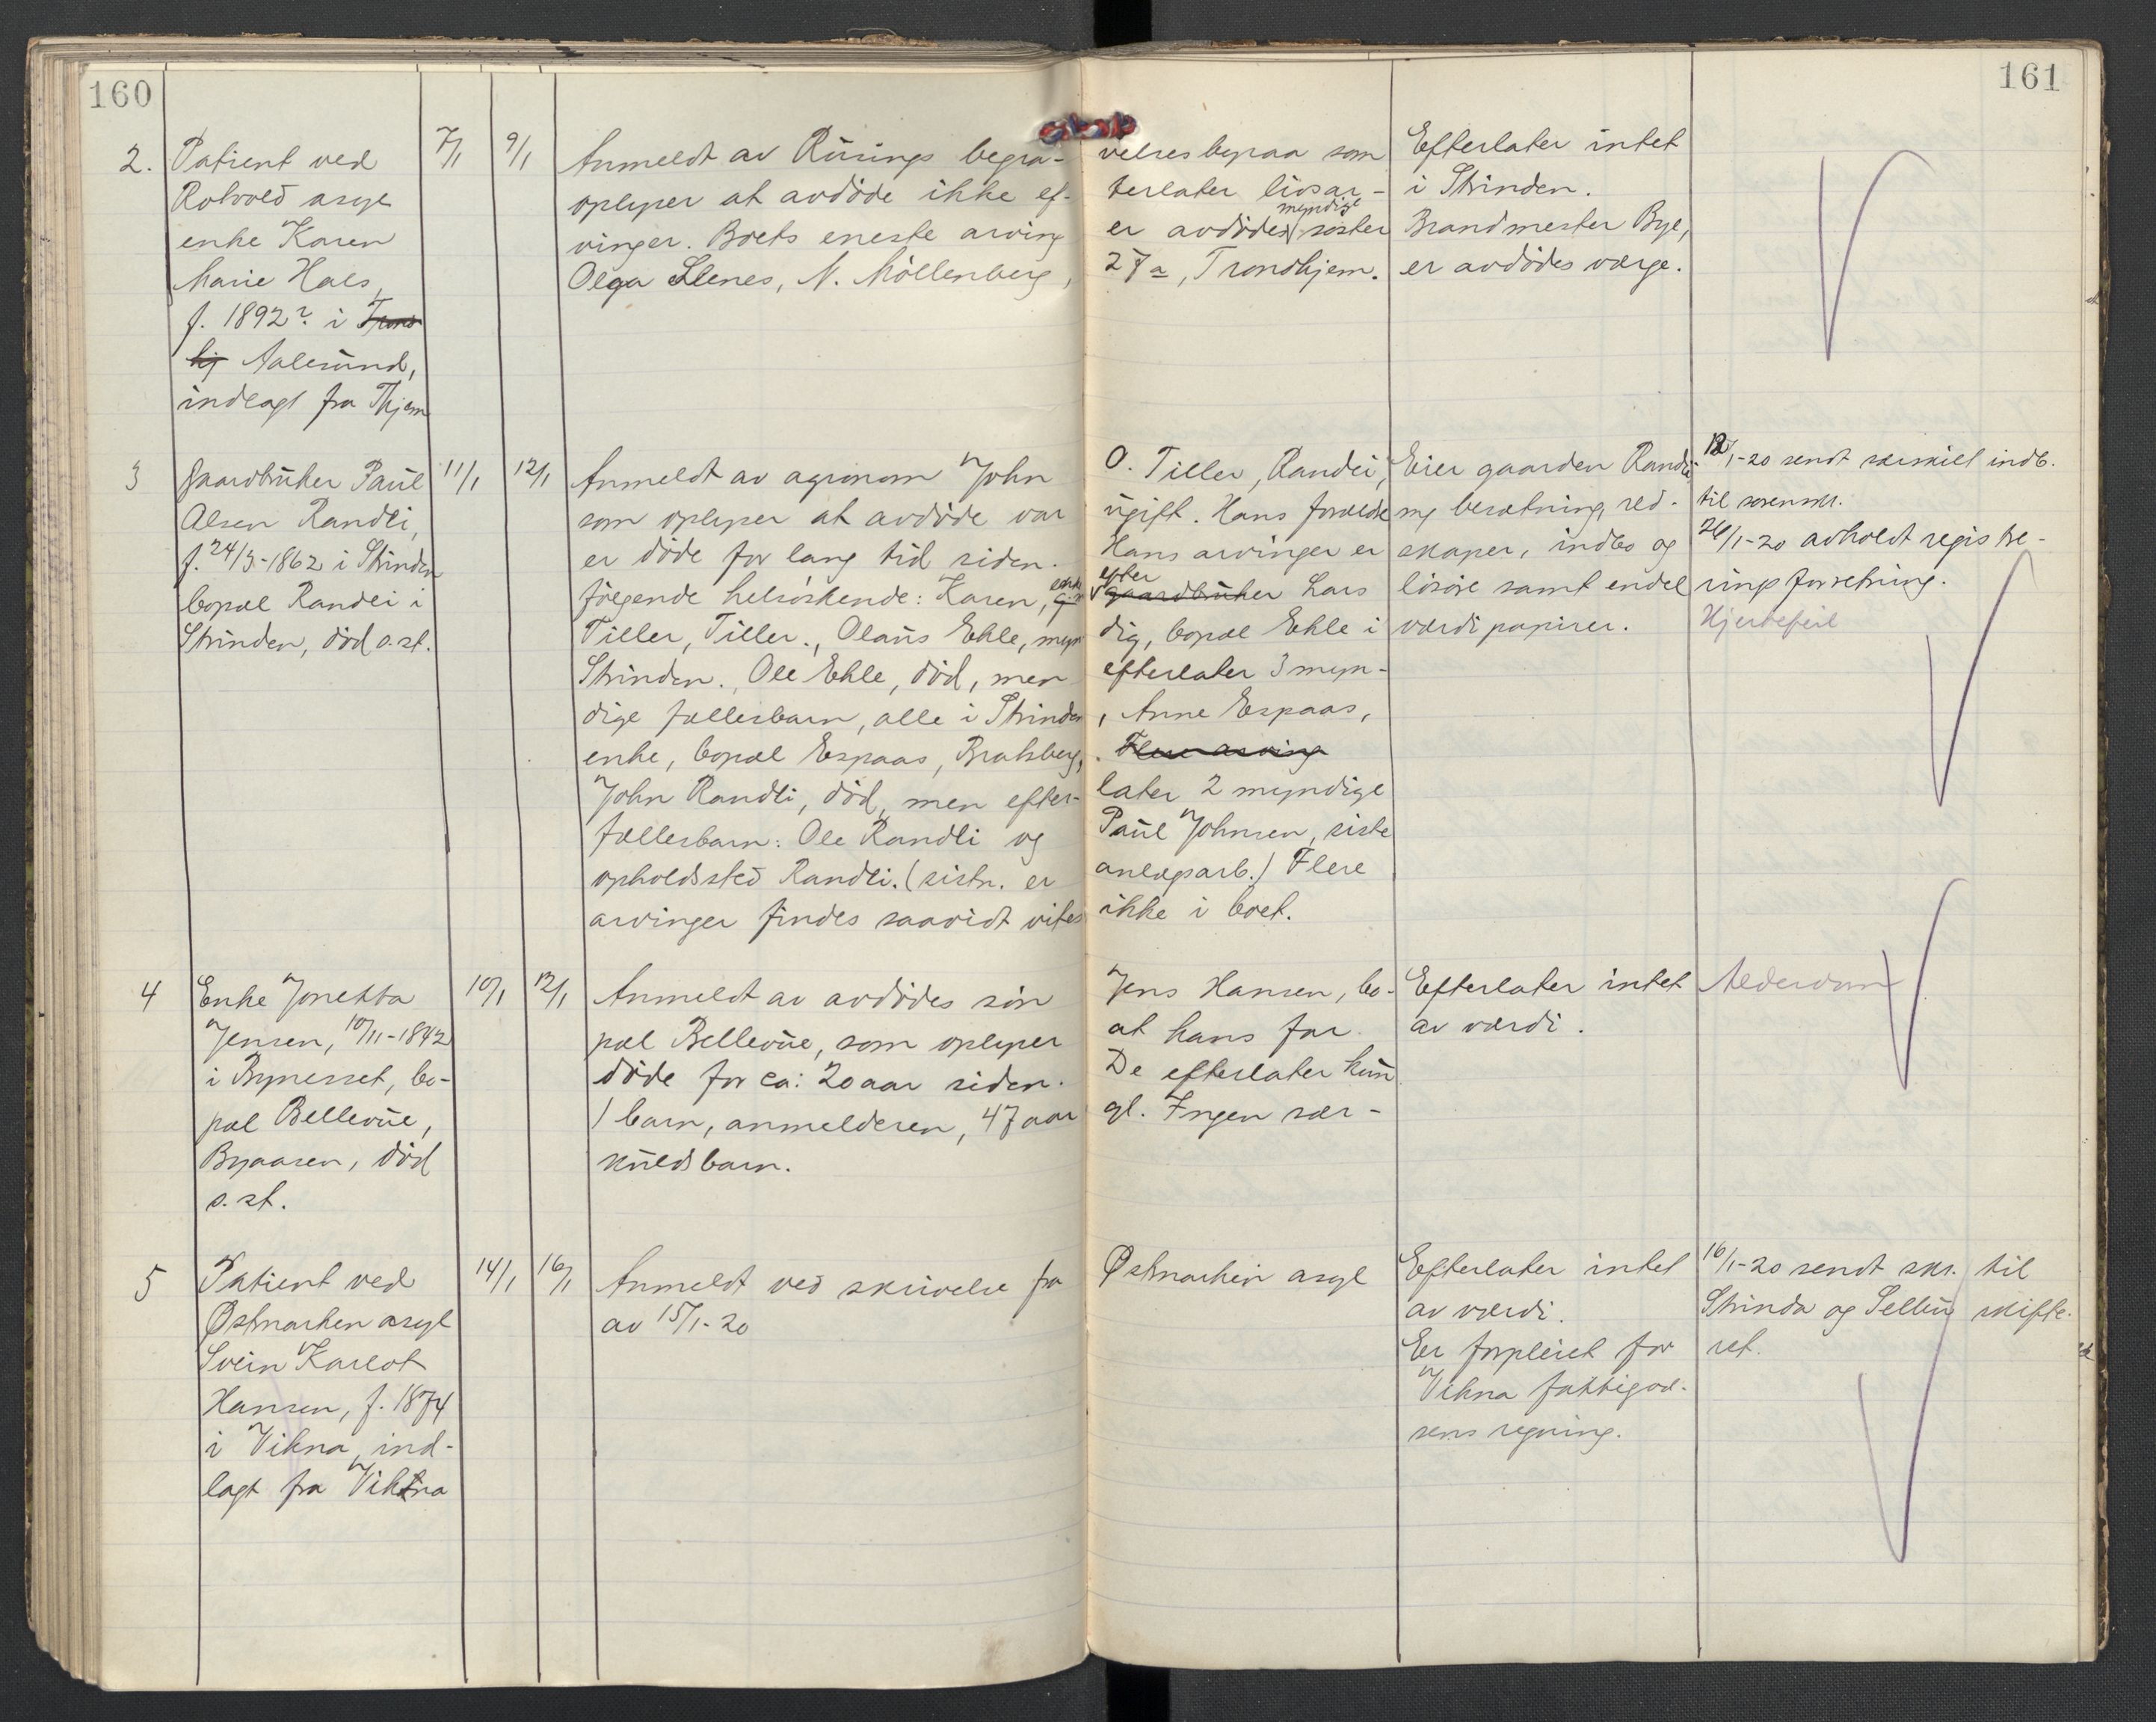 160
161
2. Patient ved
Rotvold asyl
enke Karen
Marie Hals,
f. 1892? i Trond
hj Aalesund,
indlagt fra Thjem
7/1
9/1
Anmeldt av Rusings begra-
oplyser at avdöde ikke ef-
vinger. Boets eneste arving
Olga Stenes, N. Möllenberg,
velsesbyraa som
terlater livsar-
er avdödes myndige söster
27a, Trondhjem.
Efterlater intet
i Strinden.
Brandmester Bye,
er avdödes værge.
3 Gaardbruker Paul
Olsen Randli,
f. 24/3-1862 i Strinden
bopæl Randli i
Strinden, död s. st.
11/1
12/1
Anmeldt av agronom John
som oplyser at avdöde var
er döde for lang tid siden.
fölgende helsöskende: Karen, enke
Tiller, Tiller., Olaus Ekle, myn
Strinden. Ole Ekle, död, men
dige fællesbarn, alle i Strinden
enke, bopæl Espaas, Bratsberg,
John Randli, död, men efter-
fællesbarn: Ole Randli og
opholdssted Randli. (sistn. er
arvinger findes saavidt vites
O. Tiller, Randli,
ugift. Hans forældre
Hans arvinger er
efter
gaardbruker Lars
dig, bopæl Ekle i
efterlater 3 myn-
, Anne Espaas,
. Flere arving
later 2 myndige
Paul Johnsen, siste
anlægsarb.) Flere
ikke i boet.
Eier gaarden Randli
m/ besætning, red-
skaper, indbo og
lösöre samt endel
værdipapirer.
12/1-20 sendt særskilt indb.
til sorenskr.
26/1-20 avholdt registre-
rings forretning.
Hjertefeil
4 Enke Jonetta
Jensen, 10/11-1842
i Bynesset, bo-
pæl Bellevue,
Byaasen, död
s. st.
10/1
12/1
Anmeldt av avdödes sön
pæl Bellevue, som oplyser
döde for ca: 20 aar siden.
1 barn, anmelderen, 47 aar
kuldsbarn.
Jens Hansen, bo-
at hans far
De efterlater kun
gl. Ingen sær-
Efterlater intet
av værdi.
Alderdom
5 Patient ved
Østmarken asyl
Svein Karlot
Hansen, f. 1874
i Vikna, ind-
lagt fra Vikna
14/1
16/1
Anmeldt ved skrivelse fra
av 15/1-20
Østmarken asyl
Efterlater intet
av værdi.
Er forpleiet for
Vikna fattigvæ-
sens regning.
16/1-20 sendt skr. til
Strinda og Selbu skifte-
ret.